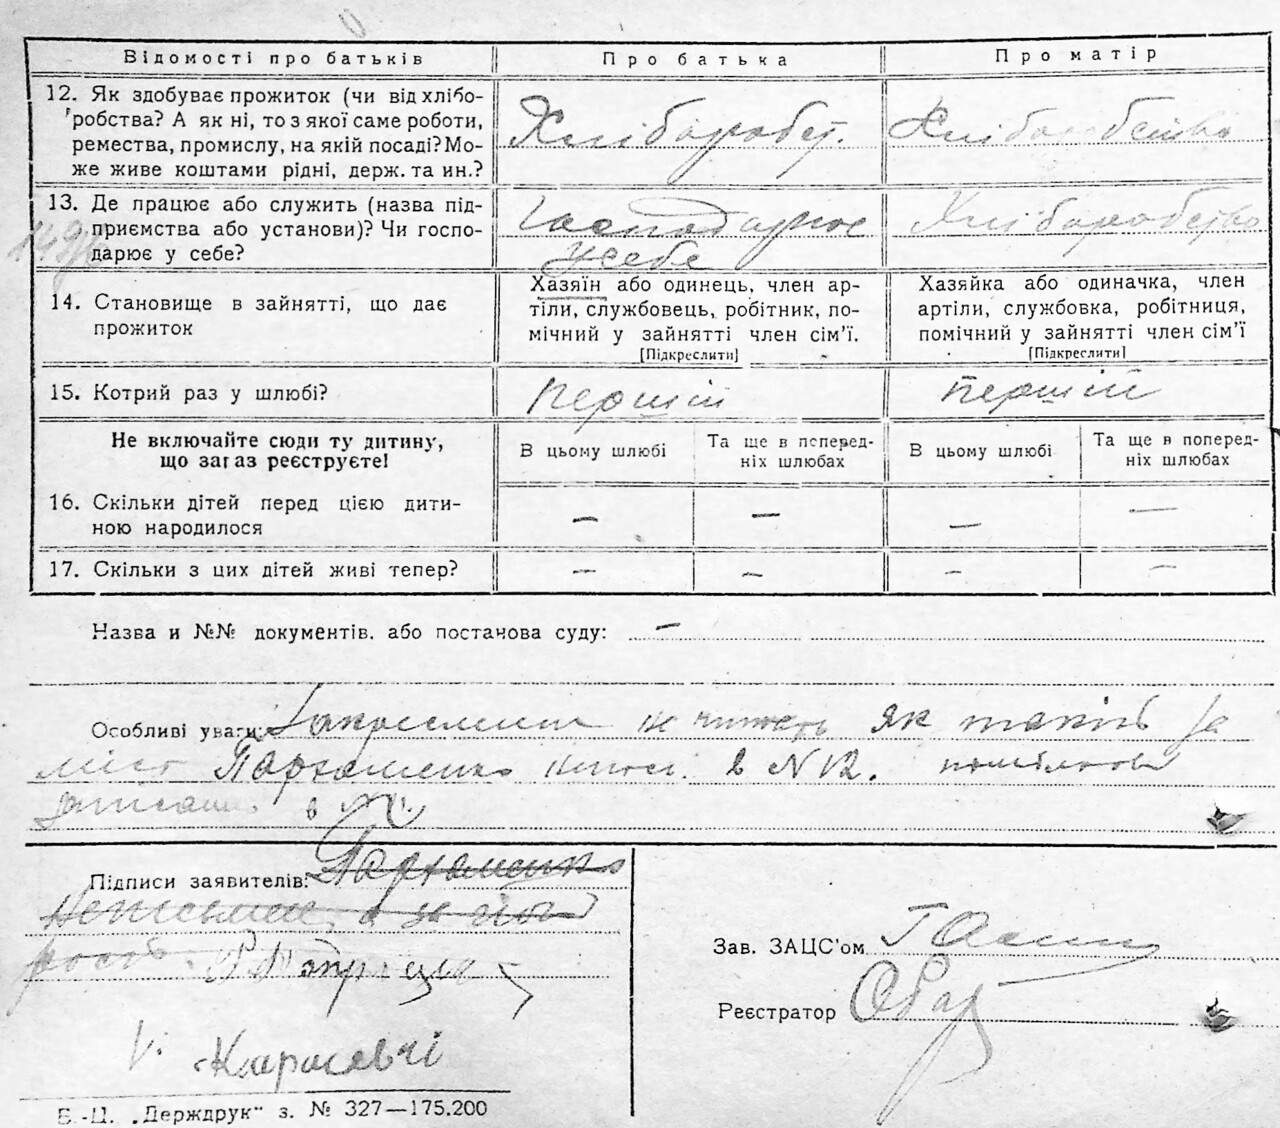 Відомості про батьків
Про батька
Про матір
12. Як здобуває прожиток (чи від хлібо-
робства? А як ні, то з якої саме роботи,
ремества, промислу, на якій посаді? Мо-
же живе коштами рідні, держ. та ин.?
Хліборобст.
Хліборобство
13. Де працює або служить (назва під-
приємства або установи)? Чи госпо-
дарює у себе?
Господарює
у себе
Хліборобство
14. Становище в зайнятті, що дає
прожиток
Хазяїн або одинець, член ар-
тіли, службовець, робітник, по-
мічний у зайнятті член сім'ї.
[Підкреслити]
Хазяйка або одиначка, член
артіли, службовка, робітниця,
помічний у зайнятті член сім'ї
[Підкреслити]
15. Котрий раз у шлюбі?
перший
перший
Не включайте сюди ту дитину,
що зараз реєструєте!
В цьому шлюбі
Та ще в поперед-
ніх шлюбах
В цьому шлюбі
Та ще в поперед-
ніх шлюбах
16. Скільки дітей перед цією дити-
ною народилося
— — — —
17. Скільки з цих дітей живі тепер?
— — — —
Назва и №№ документів. або постанова суду: —
Особливі уваги: не читать як
Пархоменко в N 12. помилково
в
Підписи заявителів: Пархоменко
Неписьмен. а за його
Зав. ЗАЦС'ом
Реєстратор
Б.-Ц. „Держдрук" з. № 327—175.200